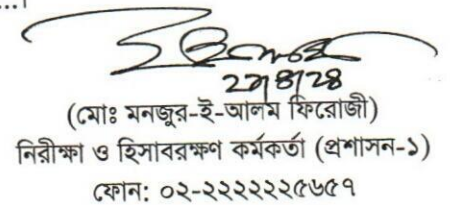 (মোঃ মনজুর-ই-আলম ফিরোজী)
নিরীক্ষা ও হিসাবরক্ষণ কর্মকর্তা (প্রশাসন-১)
ফোন: ০২-২২২২২২৫৬৫৭